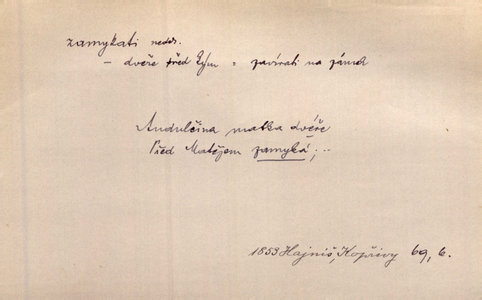 zamykati nedok.
– dveře před kým = zavírati na zámek
Andulčina matka dvéře
Před Matějem zamyká; ..
1853 Hajniš, Kopřivy 69, 6.